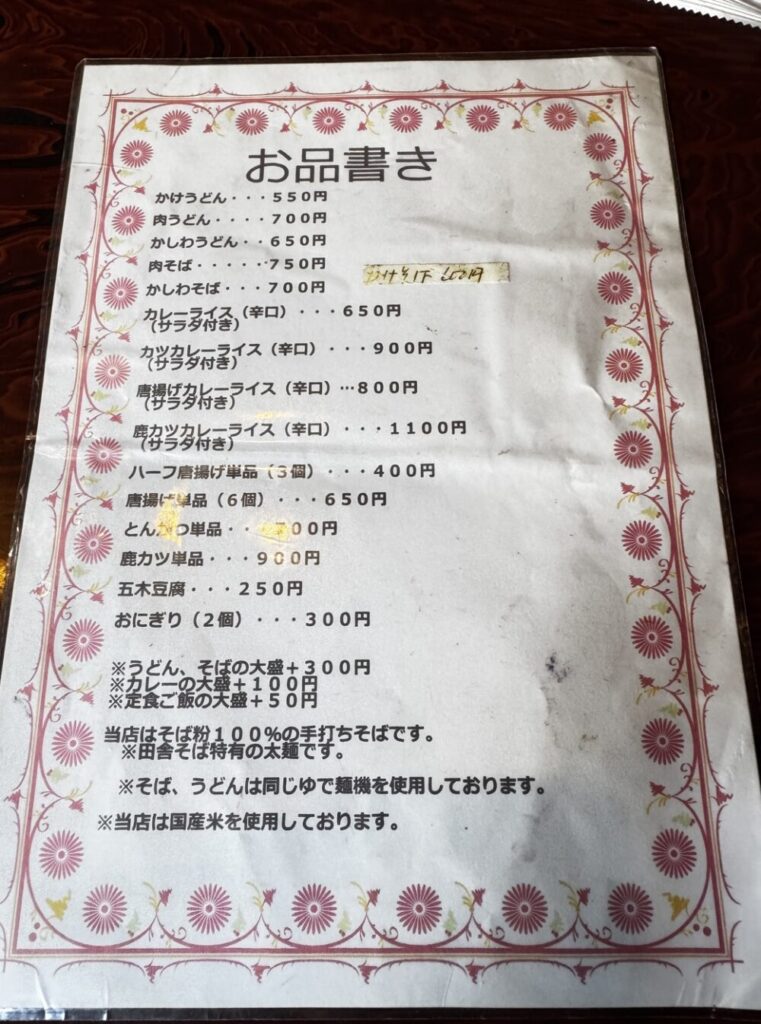 お品書き
かけうどん・・・５５０円
肉うどん・・・・７００円
かしわうどん・・６５０円
肉そば・・・・・７５０円
かけそば ６００円
かしわそば・・・７００円
カレーライス（辛口）・・・６５０円
（サラダ付き）
カツカレーライス（辛口）・・・９００円
（サラダ付き）
唐揚げカレーライス（辛口）…８００円
（サラダ付き）
鹿カツカレーライス（辛口）・・・１１００円
（サラダ付き）
ハーフ唐揚げ単品（３個）・・・４００円
唐揚げ単品（６個）・・・６５０円
とんかつ単品・・・７００円
鹿カツ単品・・・９００円
五木豆腐・・・２５０円
おにぎり（２個）・・・３００円
※うどん、そばの大盛＋３００円
※カレーの大盛＋１００円
※定食ご飯の大盛＋５０円
当店はそば粉１００％の手打ちそばです。
※田舎そば特有の太麺です。
※そば、うどんは同じゆで麺機を使用しております。
※当店は国産米を使用しております。